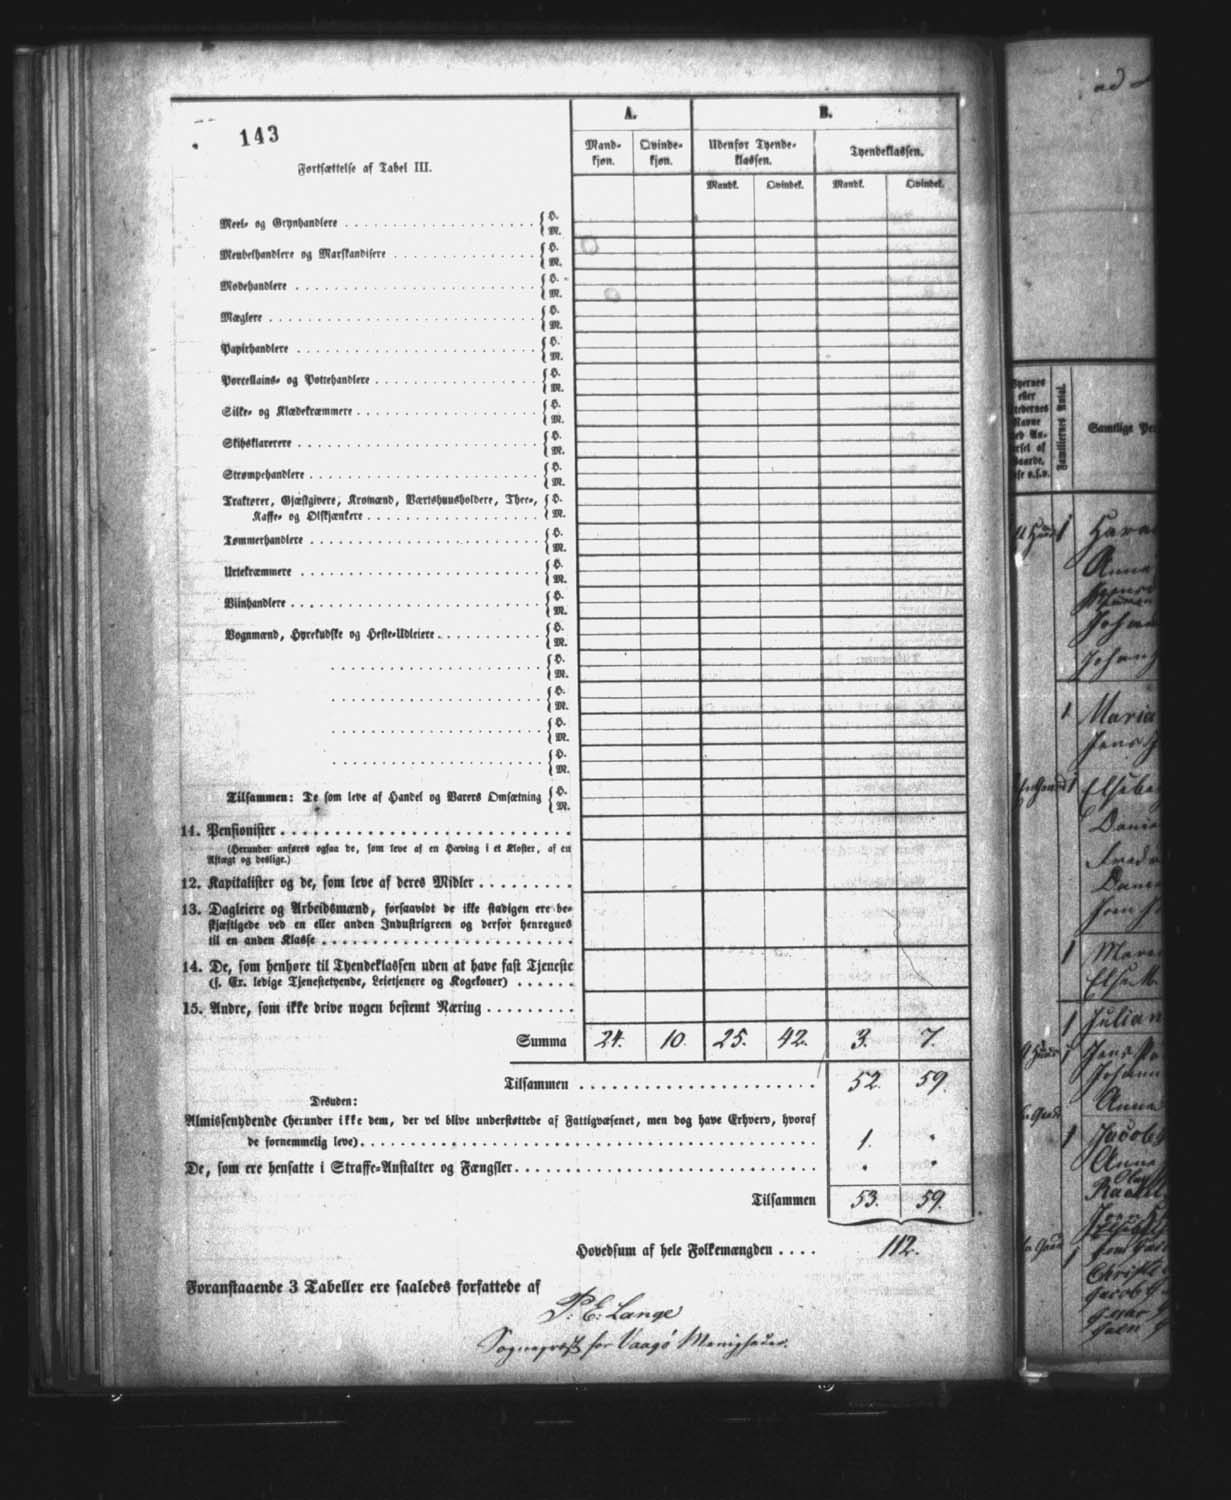 143
Fortsættelse af Tabel III.
A.
B.
Mand-
kjøn.
Qvinde-
kjøn.
Udenfor Tyende-
klassen.
Tyendeklassen.
Mandk.
Qvindek.
Mandk.
Qvindek.
Meel- og Grynhandlere { H.
{ M.
Meubelhandlere og Marskandisere { H.
{ M.
Modehandlere { H.
{ M.
Mæglere { H.
{ M.
Papirhandlere { H.
{ M.
Porcellains- og Pottehandlere { H.
{ M.
Silke- og Klædekræmmere { H.
{ M.
Skibsklarerere { H.
{ M.
Strømpehandlere { H.
{ M.
Traktører, Gjæstgivere, Kromænd, Værtshuusholdere, Thee-, { H.
Kaffe- og Ølskjænkere { M.
Tømmerhandlere { H.
{ M.
Urtekræmmere { H.
{ M.
Viinhandlere { H.
{ M.
Vognmænd, Hyrekudske og Heste-Udleiere { H.
{ M.
{ H.
{ M.
{ H.
{ M.
{ H.
{ M.
{ H.
{ M.
Tilsammen: De som leve af Handel og Varers Omsætning { H.
{ M.
11. Pensionister
(Herunder anføres ogsaa de, som leve af en Hæving i et Kloster, af en
Aftægt og deslige.)
12. Kapitalister og de, som leve af deres Midler
13. Dagleiere og Arbeidsmænd, forsaavidt de ikke stadigen ere be-
skjæftigede ved en eller anden Industrigreen og derfor henregnes
til en anden Klasse
14. De, som henhøre til Tyendeklassen uden at have fast Tjeneste
(f. Ex. ledige Tjenestetyende, Leietjenere og Kogekoner)
15. Andre, som ikke drive nogen bestemt Næring
Summa 24. 10. 25. 42. 3. 7.
Tilsammen 52. 59.
Desuden:
Almissenydende (herunder ikke dem, der vel blive understøttede af Fattigvæsenet, men dog have Erhverv, hvoraf
de fornemmelig leve) 1. "
De, som ere hensatte i Straffe-Anstalter og Fængsler " "
Tilsammen 53. 59.
Hovedsum af hele Folkemængden 112.
Foranstaaende 3 Tabeller ere saaledes forfattede af
P: E: Lange
Sognepræst for Vaagø Menigheder.
ad
eller
Navne
Familiernes Antal.
Samtlige
1
Anne
1 Maria
Jens
1 Elsebe
1
1 Julian
1 Jens
Anne
1 Jacob
Anne
1
Jacob